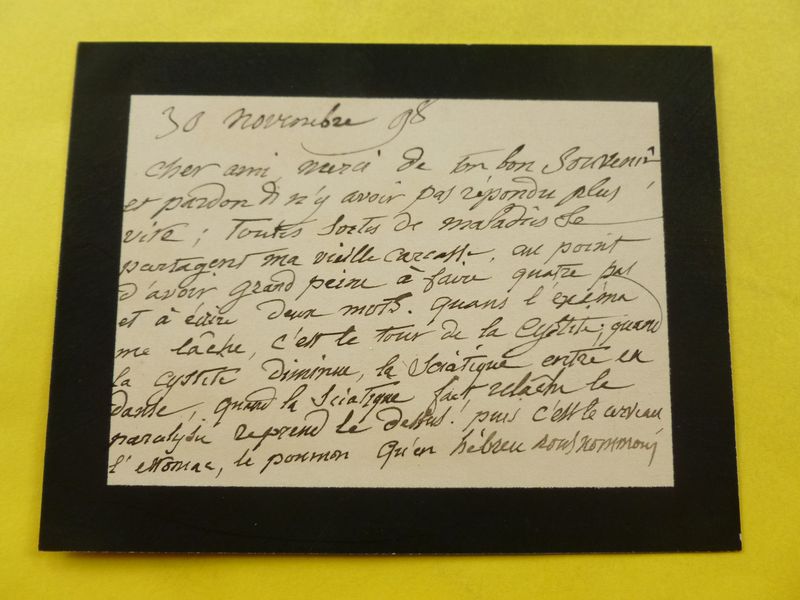 30 novembre 98
cher ami, merci de ton bon souvenir
et pardon di n'y avoir pas répondu plus
vite ; toutes sortes de maladies se
partagent ma vieille carcasse, au point
d'avoir grand peine à faire quatre pas
et à écrire deux mots. quand l'exéma
me lâche, c'est le tour de la cystite ; quand
la cystite diminue, la sciatique entre en
danse, quand la sciatique fait relache la
paralysie reprend le dessus. puis c'est le cerveau
l'estomac, le poumon qu'en hébreu nous nommons